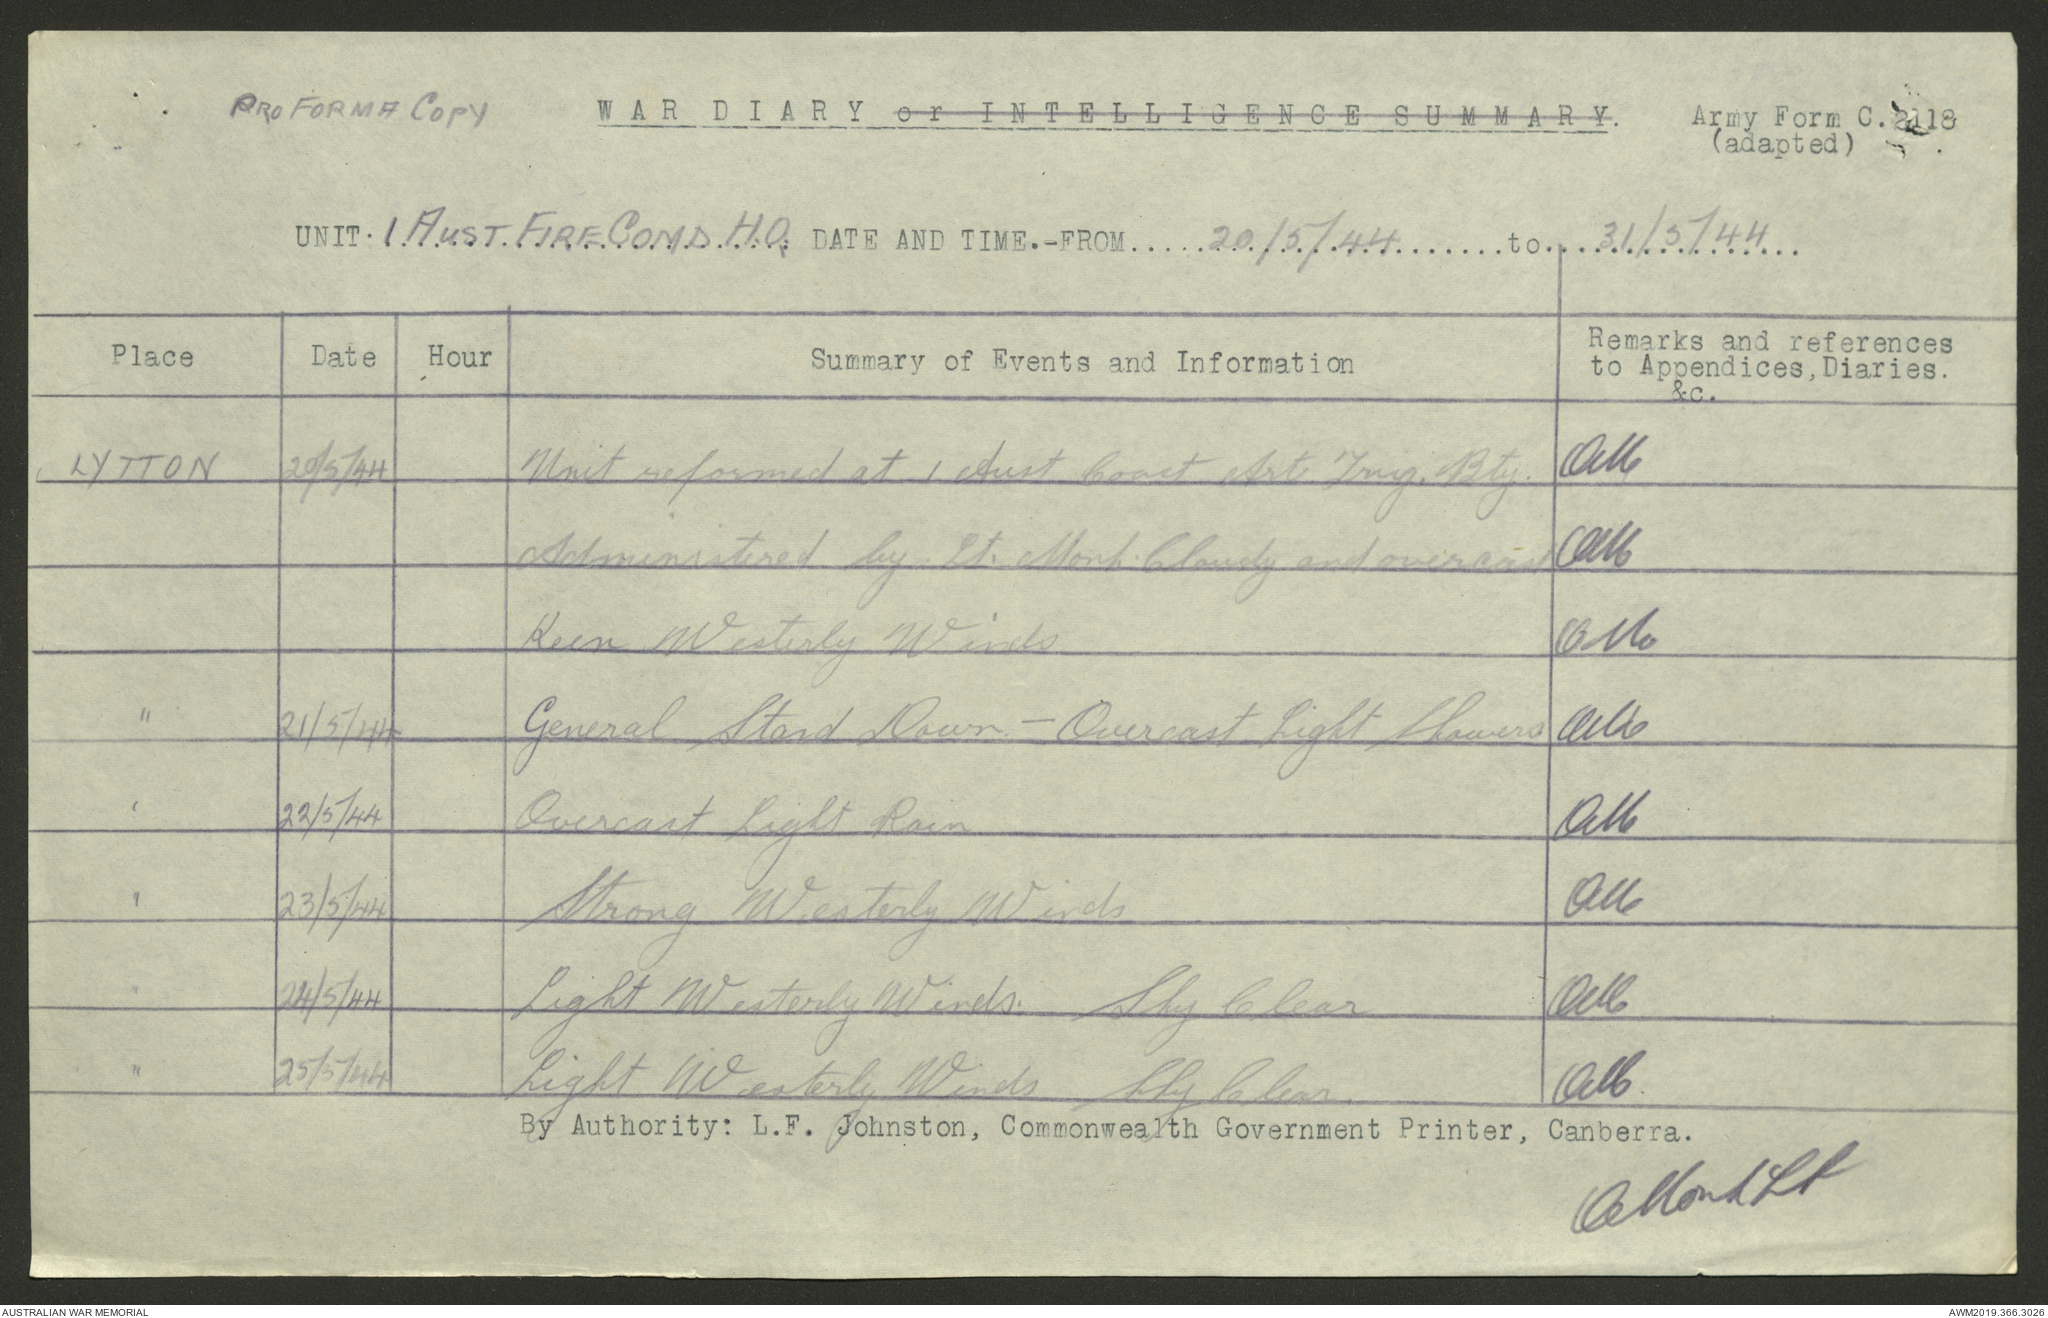 PRO FORMA COPY
WAR DIARY or INTELLIGENCE SUMMARY.
Army Form C.2118
(adapted)
UNIT. 1 AUST. FIRE COMD. H.Q. DATE AND TIME.-FROM.....20/5/44.......to....31/5/44...
Place Date Hour Summary of Events and Information Remarks and references
to Appendices, Diaries.
&c.
LYTTON 20/5/44 Unit reformed at 1 Aust Coast Art Trng. Bty.
Administered by Lt. Monk. Cloudy and overcast
Keen Westerly Winds
" 21/5/44 General Stand Down - Overcast Light Showers
" 22/5/44 Overcast Light Rain
" 23/5/44 Strong Westerly Winds
" 24/5/44 Light Westerly Winds. Sky Clear
" 25/5/44 Light Westerly Winds Sky Clear.
By Authority: L.F. Johnston, Commonwealth Government Printer, Canberra.
Monk Lt
AUSTRALIAN WAR MEMORIAL
AWM2019.366.3026